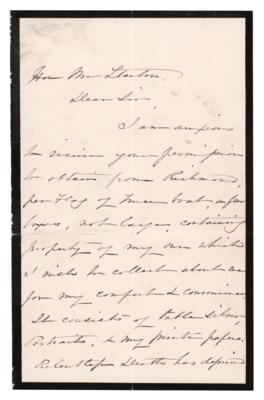 Hon Mr Stanton.
Dear Sir,
I am anxious
to receive your permission
to obtain from Richmond,
per Flag of Truce boat a few
boxes, not large, containing
property of my own which
I wish to collect about me
for my comfort & convenience,
It consists of Table Silver,
Portraits, & my private papers.
Relentless Death has deprived